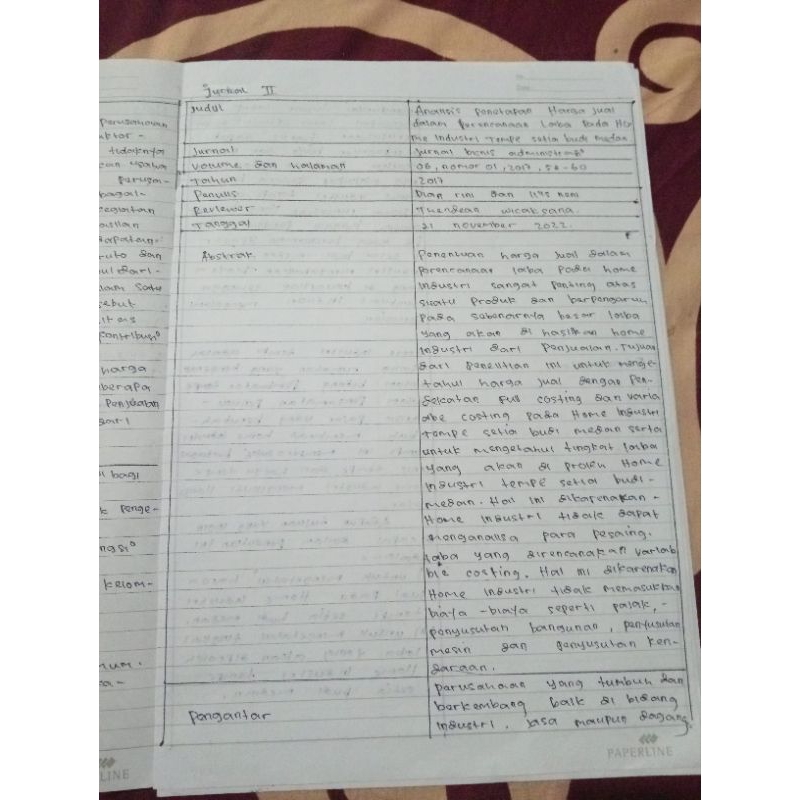 Jurnal II
Judul
Analisis penetapan Harga Jual
dalam perencanaan Laba Pada Ho
me Industri Tempe setia budi medan
Jurnal
Jurnal bisnis administrasi
Volume dan halaman
06, nomor 01, 2017, 54-60
Tahun
2017
Penulis
Dian rini dan
Reviewer
wicaksana.
Tanggal
21 november 2022.
Abstrak
Penentuan harga jual dalam
perencanaan laba pada home
industri sangat penting atas
suatu produk dan berpengaruh
pada sebenarnya besar laba
yang akan di hasilkan home
industri dari penjualan. Tujuan
dari penelitian ini untuk menge-
tahui harga jual dengan pen-
dekatan full costing dan varia
abe costing pada Home Industri
tempe setia budi medan serta
untuk mengetahui tingkat laba
yang akan di proleh Home
industri tempe setia budi-
medan. Hal ini dikarenakan -
Home industri tidak dapat
menganalisa para pesaing.
laba yang direncanakan variab
ble costing. Hal ini dikarenakan
Home industri tidak memasukkan
biaya -biaya seperti pajak, -
penyusutan bangunan, penyusutan
mesin dan penyusutan ken-
daraan.
Pengantar
perusahaan yang tumbuh dan
berkembang baik di bidang
industri, jasa maupun dagang
PAPERLINE
perusahaan
ktor -
tidaknya
can usaha
perusa-
bagai-
egiatan
asilan
dapatan-
ruto dan
ul dari-
lam satu
sebut
contribusi
harga
berapa
Penjualan
dari
bagi
k penge-
ngsi
kelom-
mum.
na-
LINE